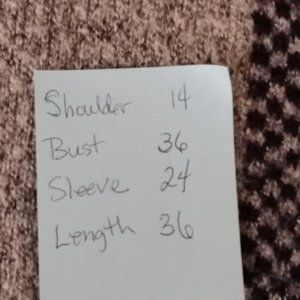 Shoulder 14
Bust 36
Sleeve 24
Length 36